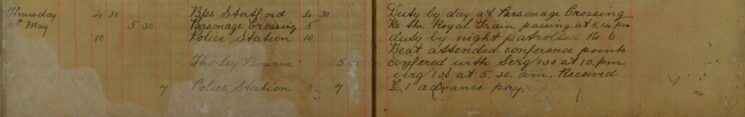 Thursday 4 30 Bps Stortford 4 30 Duty by day at Parsonage Crossing
May 5 30 Parsonage Crossing 5 Re the Royal Train passing at 5.14 pm
10 Police Station 10 duty by night patrolled No 6
Beat attended conference points
Thorley Bourne 5 confered with Serg 130 at 10. pm
serg 130 at 5. 30. am. Received
7 Police Station 7 £1 advance pay.